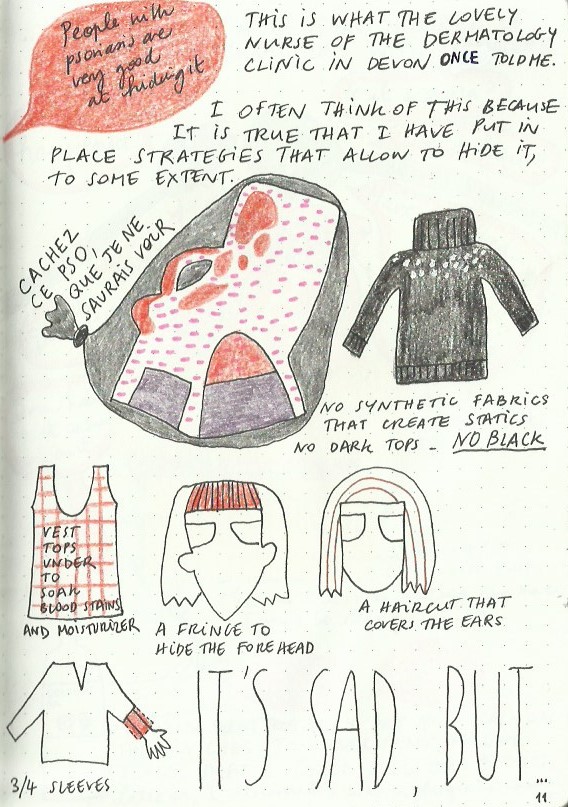 People with
psoriasis are
very good
at hiding it
THIS IS WHAT THE LOVELY
NURSE OF THE DERMATOLOGY
CLINIC IN DEVON ONCE TOLD ME.
I OFTEN THINK OF THIS BECAUSE
IT IS TRUE THAT I HAVE PUT IN
PLACE STRATEGIES THAT ALLOW TO HIDE IT,
TO SOME EXTENT.
CACHEZ
CE PSO,
QUE JE NE
SAURAIS VOIR
NO SYNTHETIC FABRICS
THAT CREATE STATICS
NO DARK TOPS - NO BLACK
VEST
TOPS
UNDER
TO
SOAK
BLOOD STAINS
AND MOISTURIZER
A FRINGE TO
HIDE THE FOREHEAD
A HAIRCUT THAT
COVERS THE EARS
3/4 SLEEVES
IT'S SAD, BUT...
11